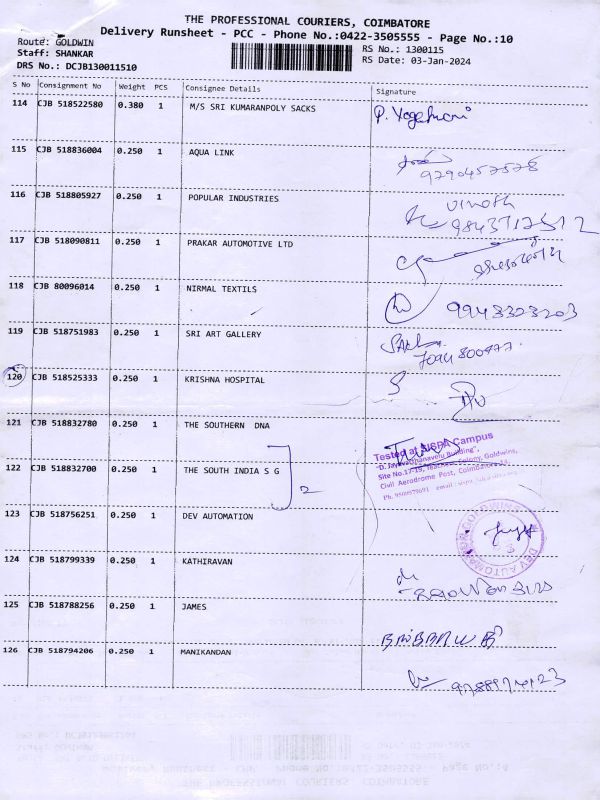 THE PROFESSIONAL COURIERS, COIMBATORE
Delivery Runsheet - PCC - Phone No.:0422-3505555 - Page No.:10
Route: GOLDWIN
Staff: SHANKAR
DRS No.: DCJB130011510
RS No.: 1300115
RS Date: 03-Jan-2024
S No Consignment No Weight PCS Consignee Details Signature
114 CJB 518522580 0.380 1 M/S SRI KUMARANPOLY SACKS P. Yogeshwari
115 CJB 518836004 0.250 1 AQUA LINK
9790457578
116 CJB 518805927 0.250 1 POPULAR INDUSTRIES vinoth
9843712512
117 CJB 518090811 0.250 1 PRAKAR AUTOMOTIVE LTD
118 CJB 80096014 0.250 1 NIRMAL TEXTILS 9943323203
119 CJB 518751983 0.250 1 SRI ART GALLERY
120 CJB 518525333 0.250 1 KRISHNA HOSPITAL
121 CJB 518832780 0.250 1 THE SOUTHERN DNA
Tested at SISPA Campus
122 CJB 518832700 0.250 1 THE SOUTH INDIA S G 2
Civil Aerodrome Post, Coimbatore
123 CJB 518756251 0.250 1 DEV AUTOMATION
DEV AUTOMATION GOLDWINS
124 CJB 518799339 0.250 1 KATHIRAVAN
125 CJB 518788256 0.250 1 JAMES
126 CJB 518794206 0.250 1 MANIKANDAN